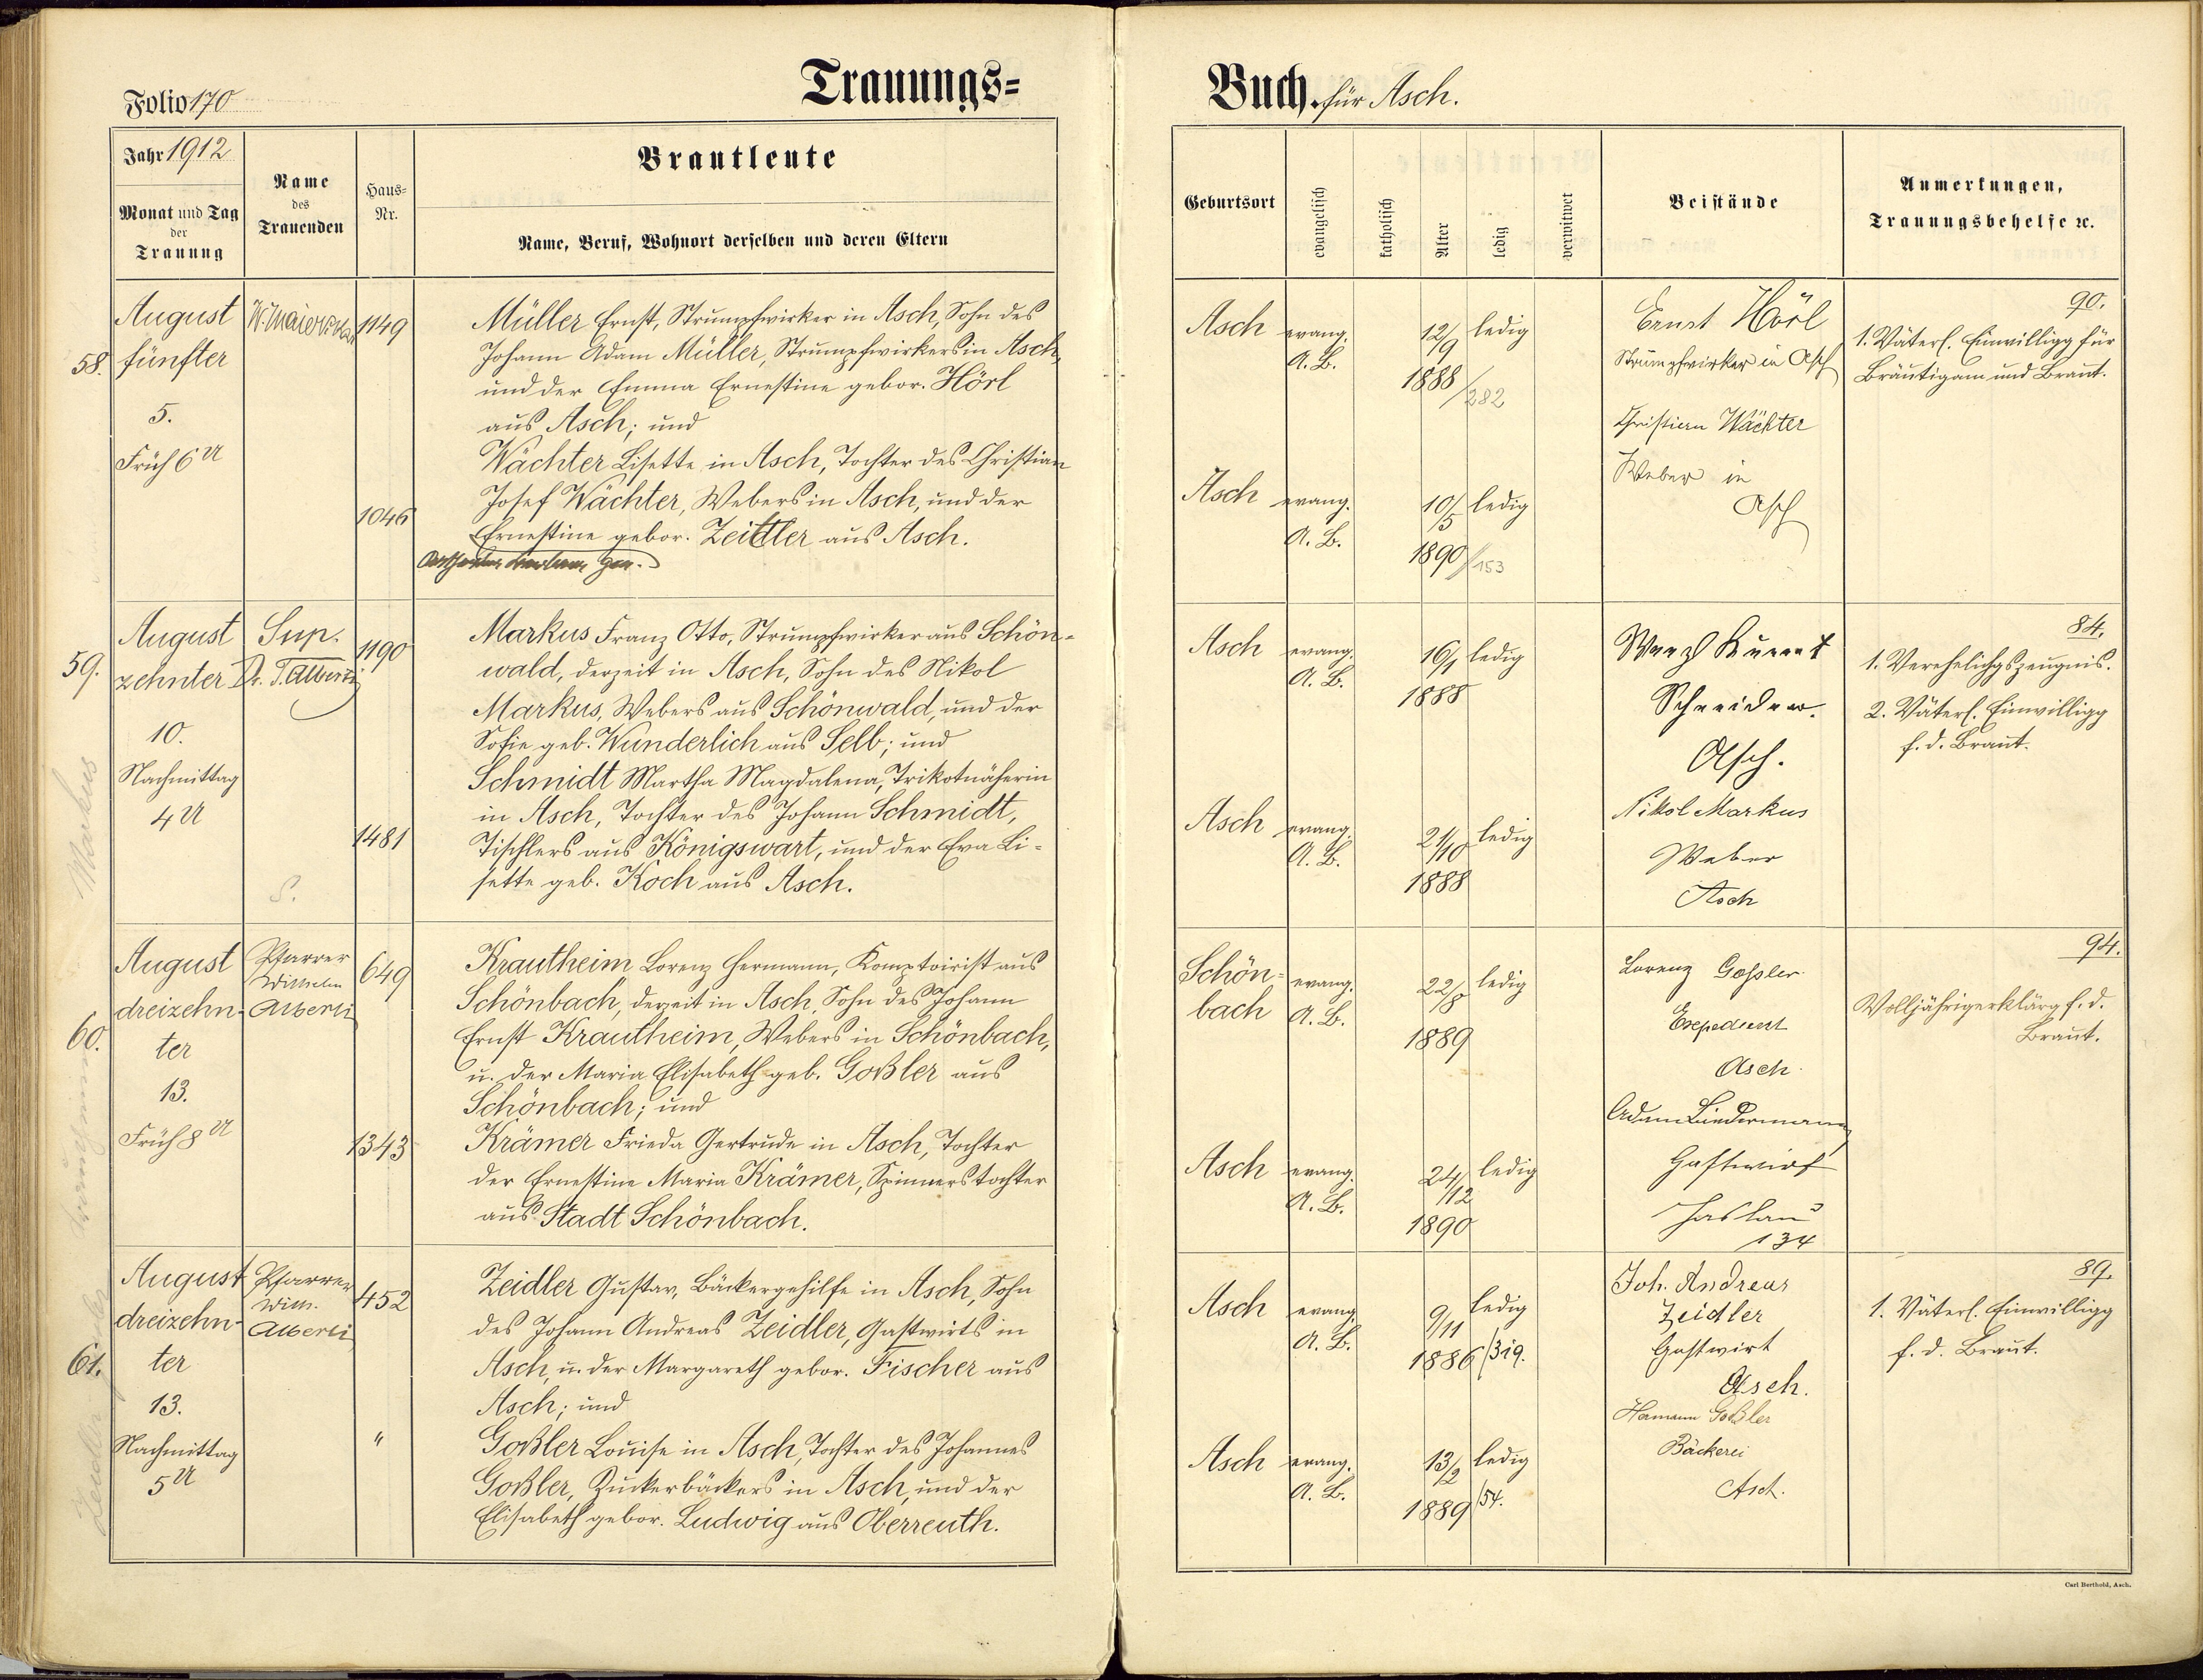 Folio 170
Trauungs=
Buch. für Asch.
Jahr 1912
Monat und Tag
der
Trauung
Name
des
Trauenden
Haus=
Nr.
Brautleute
Name, Beruf, Wohnort derselben und deren Eltern
Geburtsort
evangelisch
katholisch
Alter
ledig
verwitwet
Beistände
Anmerkungen,
Trauungsbehelfe ꝛc.
58.
August
fünfter
5.
Früh 6 U
1149
Müller Ernst, Strumpfwirker in Asch, Sohn des
Johann Adam Müller, Strumpfwirkers in Asch,
und der Emma Ernestine gebor. Hörl
aus Asch; und
Wächter Lisette in Asch, Tochter des Christian
1046
Josef Wächter, Webers in Asch, und der
Ernestine gebor. Zeidler aus Asch.
Asch
evang.
A. B.
12/9
1888/282
ledig
Asch
evang.
A. B.
10/5
1890/153
ledig
Ernst Hörl
Strumpfwirker in Asch
Christian Wächter
Weber in
Asch
90.
1. Väterl. Einwilligg für
Bräutigam und Braut.
59.
August
zehnter
10.
Nachmittag
4 U
Sup.
Dr. T. Alberti
S.
1190
Markus Franz Otto, Strumpfwirker aus Schön=
wald, derzeit in Asch, Sohn des Nikol
Markus, Webers aus Schönwald, und der
Sofie geb. Wunderlich aus Selb; und
Schmidt Martha Magdalena, Trikotnäherin
in Asch, Tochter des Johann Schmidt,
1481
Tischlers aus Königswart, und der Eva Li=
sette geb. Koch aus Asch.
Asch
evang.
A. B.
16/1
1888
ledig
Asch
evang.
A. B.
21/10
1888
ledig
Schneider.
Asch.
Nikol Markus
Weber
Asch
84.
1. Verehelichgszeugnis.
2. Väterl. Einwilligg
f. d. Braut.
Markus
60.
August
dreizehn-
ter
13.
Früh 8 U
Pfarrer
Wilhelm
Alberti
649
Krautheim Lorenz Hermann, Komptoirist aus
Schönbach, derzeit in Asch, Sohn des Johann
Ernst Krautheim, Webers in Schönbach,
u. der Maria Elisabeth geb. Goßler aus
Schönbach; und
1343
Krämer Frieda Gertrude in Asch, Tochter
der Ernestine Maria Krämer, Spinnerstochter
aus Stadt Schönbach.
Schön=
bach
evang.
A. B.
22/8
1889
ledig
Asch
evang.
A. B.
24/12
1890
ledig
Lorenz Goßler
Expedient
Asch
Adam Biedermann
Gastwirt
Haslau
134
94.
Volljährigerklärg f. d.
Braut.
61.
August
dreizehn-
ter
13.
Nachmittag
5 U
Pfarrer
Wilh.
Alberti
452
Zeidler Gustav, Bäckergehilfe in Asch, Sohn
des Johann Andreas Zeidler, Gastwirts in
Asch, u. der Margareth gebor. Fischer aus
Asch; und
"
Goßler Louise in Asch, Tochter des Johannes
Goßler, Zuckerbäckers in Asch, und der
Elisabeth gebor. Ludwig aus Oberreuth.
Asch
evang.
A. B.
9/11
1886/319.
ledig
Asch
evang.
A. B.
13/2
1889/54.
ledig
Joh. Andreas
Zeidler
Gastwirt
Asch.
Hermann Goßler
Bäckerei
Asch.
89.
1. Väterl. Einwilligg
f. d. Braut.
Zeidler
Carl Berthold, Asch.